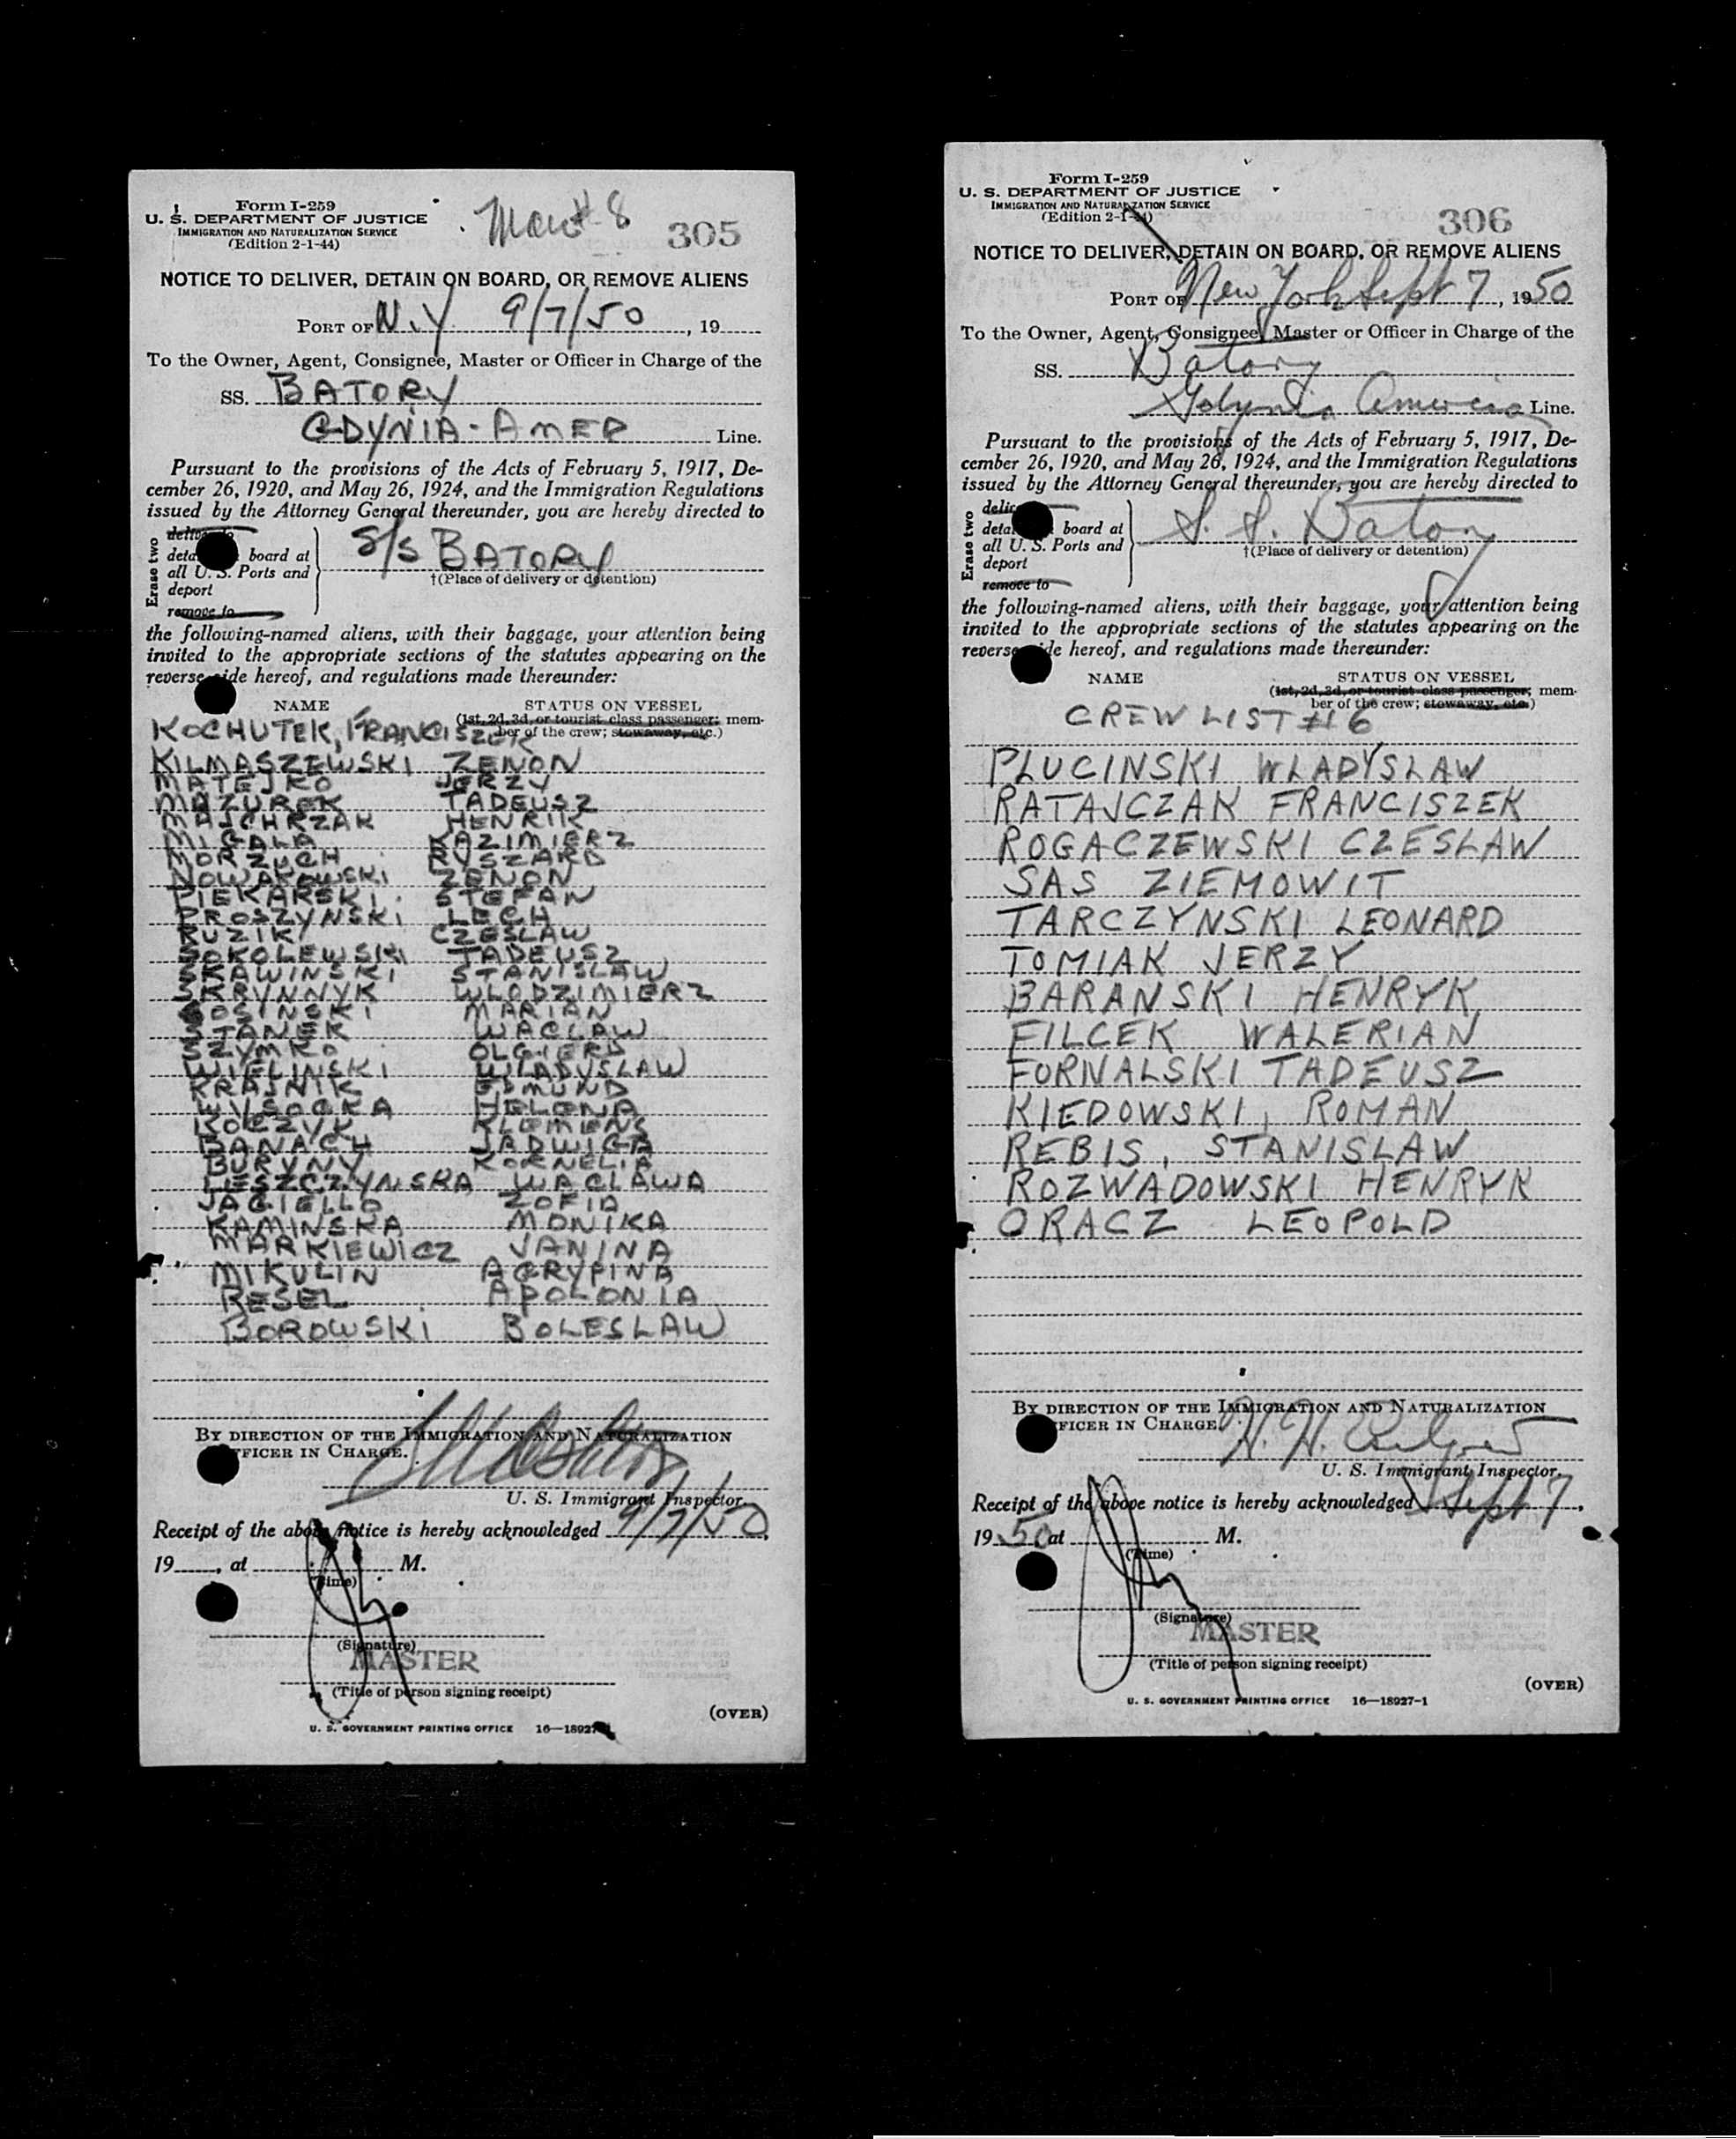 Form I-259
U. S. DEPARTMENT OF JUSTICE
IMMIGRATION AND NATURALIZATION SERVICE
(Edition 2-1-44)
8
305
NOTICE TO DELIVER, DETAIN ON BOARD, OR REMOVE ALIENS
PORT OF N.Y. 9/7/50, 19
To the Owner, Agent, Consignee, Master or Officer in Charge of the
SS. BATORY
GDYNIA-AMER Line.
Pursuant to the provisions of the Acts of February 5, 1917, De-
cember 26, 1920, and May 26, 1924, and the Immigration Regulations
issued by the Attorney General thereunder, you are hereby directed to
Erase two
deliver to
board at
all U. S. Ports and
deport
remove to
S/S BATORY
†(Place of delivery or detention)
the following-named aliens, with their baggage, your attention being
invited to the appropriate sections of the statutes appearing on the
reverse side hereof, and regulations made thereunder:
NAME STATUS ON VESSEL
(1st, 2d, 3d, or tourist class passenger; mem-
ber of the crew; stowaway, etc.)
KOCHUTEK, FRANCISZEK
KILMASZEWSKI ZENON
MATEJKO JERZY
MAZUREK TADEUSZ
MAJCHRZAK HENRIK
MIGALA KAZIMIERZ
MORZUCH RYSZARD
NOWAKOWSKI ZENON
PIEKARSKI STEFAN
PROSZYNSKI LECH
RUZIK CZESLAW
SOKOLEWSKI TADEUSZ
SKAWINSKI STANISLAW
SKRYNNYK WLODZIMIERZ
SOSINSKI MARIAN
STANEK WACLAW
SZYMKO OLGIERD
WIELINSKI WLADYSLAW
KRAJNIK EDMUND
WYSOCKA HELENA
KOCZYK KLEMENS
BANACH JADWIGA
BURYNY KORNELIA
LESZCZYNSKA WACLAWA
JAGIELLO ZOFIA
KAMINSKA MONIKA
MARKIEWICZ JANINA
MIKULIN AGRYPINA
RESEL APOLONIA
BOROWSKI BOLESLAW
BY DIRECTION OF THE IMMIGRATION AND NATURALIZATION
OFFICER IN CHARGE.
U. S. Immigrant Inspector.
Receipt of the above notice is hereby acknowledged 9/7/50,
19, at M.
(Time)
(Signature)
MASTER
(Title of person signing receipt)
(OVER)
U. S. GOVERNMENT PRINTING OFFICE 16—18927-1
Form I-259
U. S. DEPARTMENT OF JUSTICE
IMMIGRATION AND NATURALIZATION SERVICE
(Edition 2-1-44)
306
NOTICE TO DELIVER, DETAIN ON BOARD, OR REMOVE ALIENS
PORT OF New York Sept 7, 1950
To the Owner, Agent, Consignee, Master or Officer in Charge of the
SS. Batory
Gdynia America Line.
Pursuant to the provisions of the Acts of February 5, 1917, De-
cember 26, 1920, and May 26, 1924, and the Immigration Regulations
issued by the Attorney General thereunder, you are hereby directed to
Erase two
board at
all U. S. Ports and
deport
remove to
S. S. Batory
†(Place of delivery or detention)
the following-named aliens, with their baggage, your attention being
invited to the appropriate sections of the statutes appearing on the
reverse side hereof, and regulations made thereunder:
NAME STATUS ON VESSEL
(1st, 2d, 3d, or tourist class passenger; mem-
ber of the crew; stowaway, etc.)
CREW LIST #6
PLUCINSKI WLADYSLAW
RATAJCZAK FRANCISZEK
ROGACZEWSKI CZESLAW
SAS ZIEMOWIT
TARCZYNSKI LEONARD
TOMIAK JERZY
BARANSKI HENRYK
FILCEK WALERIAN
FORNALSKI TADEUSZ
KIEDOWSKI, ROMAN
REBIS, STANISLAW
ROZWADOWSKI HENRYK
ORACZ LEOPOLD
BY DIRECTION OF THE IMMIGRATION AND NATURALIZATION
OFFICER IN CHARGE.
H. H.
U. S. Immigrant Inspector.
Receipt of the above notice is hereby acknowledged Sept 7,
1950 at M.
(Time)
(Signature)
MASTER
(Title of person signing receipt)
(OVER)
U. S. GOVERNMENT PRINTING OFFICE 16—18927-1